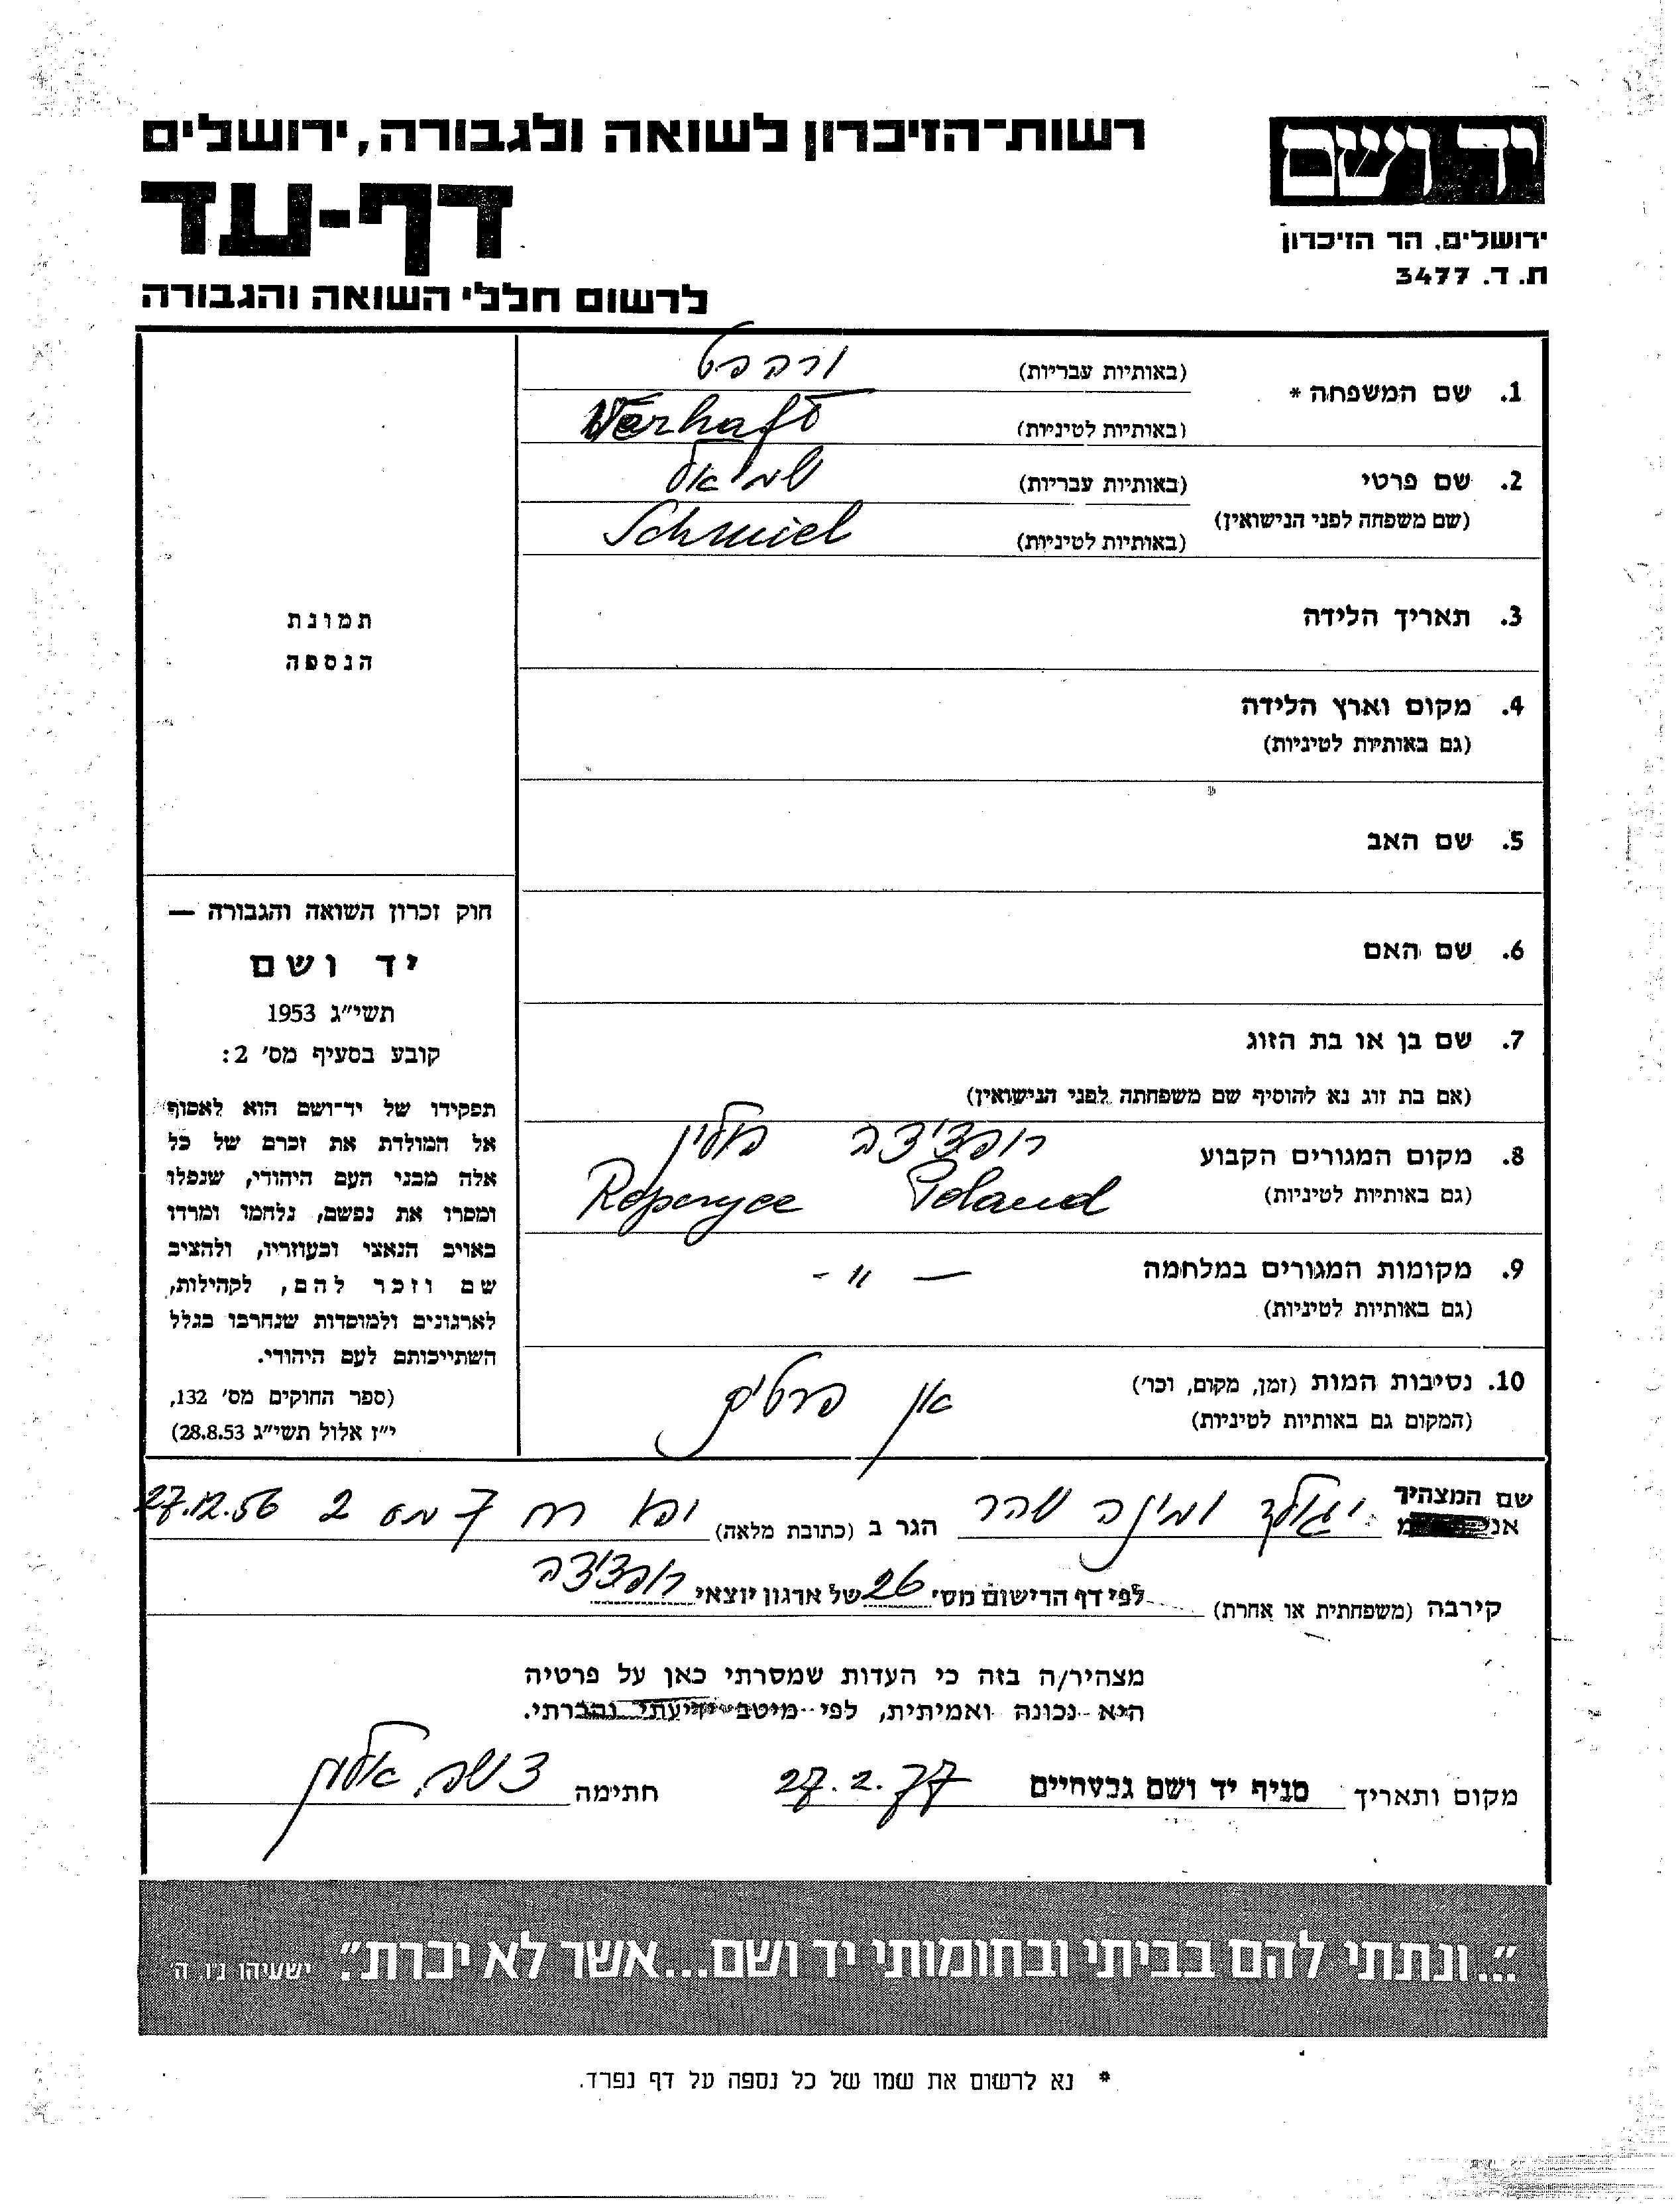 יד ושם
רשות־הזיכרון לשואה ולגבורה, ירושלים
דף-עד
ירושלים, הר הזיכרון
ת. ד. 3477
לרשום חללי השואה והגבורה
1. שם המשפחה *
(באותיות עבריות) ורהפט
(באותיות לטיניות) Warhaft
2. שם פרטי
(שם משפחה לפני הנישואין)
(באותיות עבריות) שמיאל
(באותיות לטיניות) Schmiel
3. תאריך הלידה
4. מקום וארץ הלידה
(גם באותיות לטיניות)
5. שם האב
6. שם האם
7. שם בן או בת הזוג
(אם בת זוג נא להוסיף שם משפחתה לפני הנישואין)
8. מקום המגורים הקבוע רופצ'יצה פולין
(גם באותיות לטיניות) Ropczyce Poland
9. מקומות המגורים במלחמה — " -
(גם באותיות לטיניות)
10. נסיבות המות (זמן, מקום, וכו') אין פרטים
(המקום גם באותיות לטיניות)
תמונת
הנספה
חוק זכרון השואה והגבורה —
יד ושם
תשי״ג 1953
קובע בסעיף מס׳ 2:
תפקידו של יד־ושם הוא לאסוף
אל המולדת את זכרם של כל
אלה מבני העם היהודי, שנפלו
ומסרו את נפשם, נלחמו ומרדו
באויב הנאצי ובעוזריו, ולהציב
שם וזכר להם, לקהילות,
לארגונים ולמוסדות שנחרבו בגלל
השתייכותם לעם היהודי.
(ספר החוקים מס׳ 132,
י״ז אלול תשי״ג 28.8.53)
שם המצהיר
ומינה שהר הגר ב (כתובת מלאה) 7 2 27.12.56
קירבה (משפחתית או אחרת) לפי דף הרישום מס׳ 26 של ארגון יוצאי רופצ'יצה
מצהיר/ה בזה כי העדות שמסרתי כאן על פרטיה
היא נכונה ואמיתית, לפי מיטב ידיעתי והכרתי.
מקום ותאריך סניף יד ושם גבעתיים 27.2.77 חתימה
"...ונתתי להם בביתי ובחומותי יד ושם...אשר לא יכרת". ישעיהו נ״ו, ה׳
* נא לרשום את שמו של כל נספה על דף נפרד.